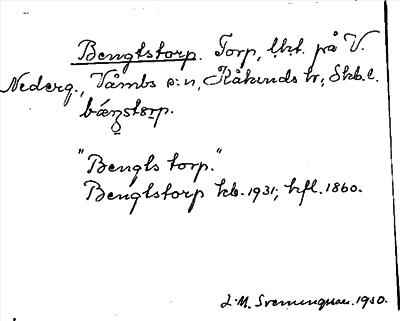 Bengtstorp. Torp, lht. på V.
Nederg., Våmbs s:n, Kåkinds hr, Skb. l.
"Bengts torp."
Bengtstorp kb. 1931; hfl. 1860.
L. M. Svenungsson. 1950.